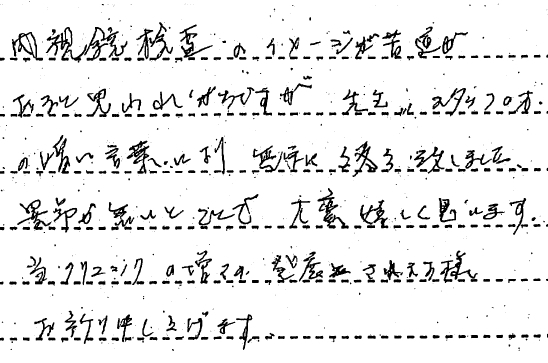 内視鏡検査のイメージが苦痛が
あると思われがちですが 先生、スタッフの方
の 言葉により 無事に 終了致しました。
異常が無いとのことで 大変嬉しく思います。
当クリニックの増々 されます様
お祈り申し上げます。